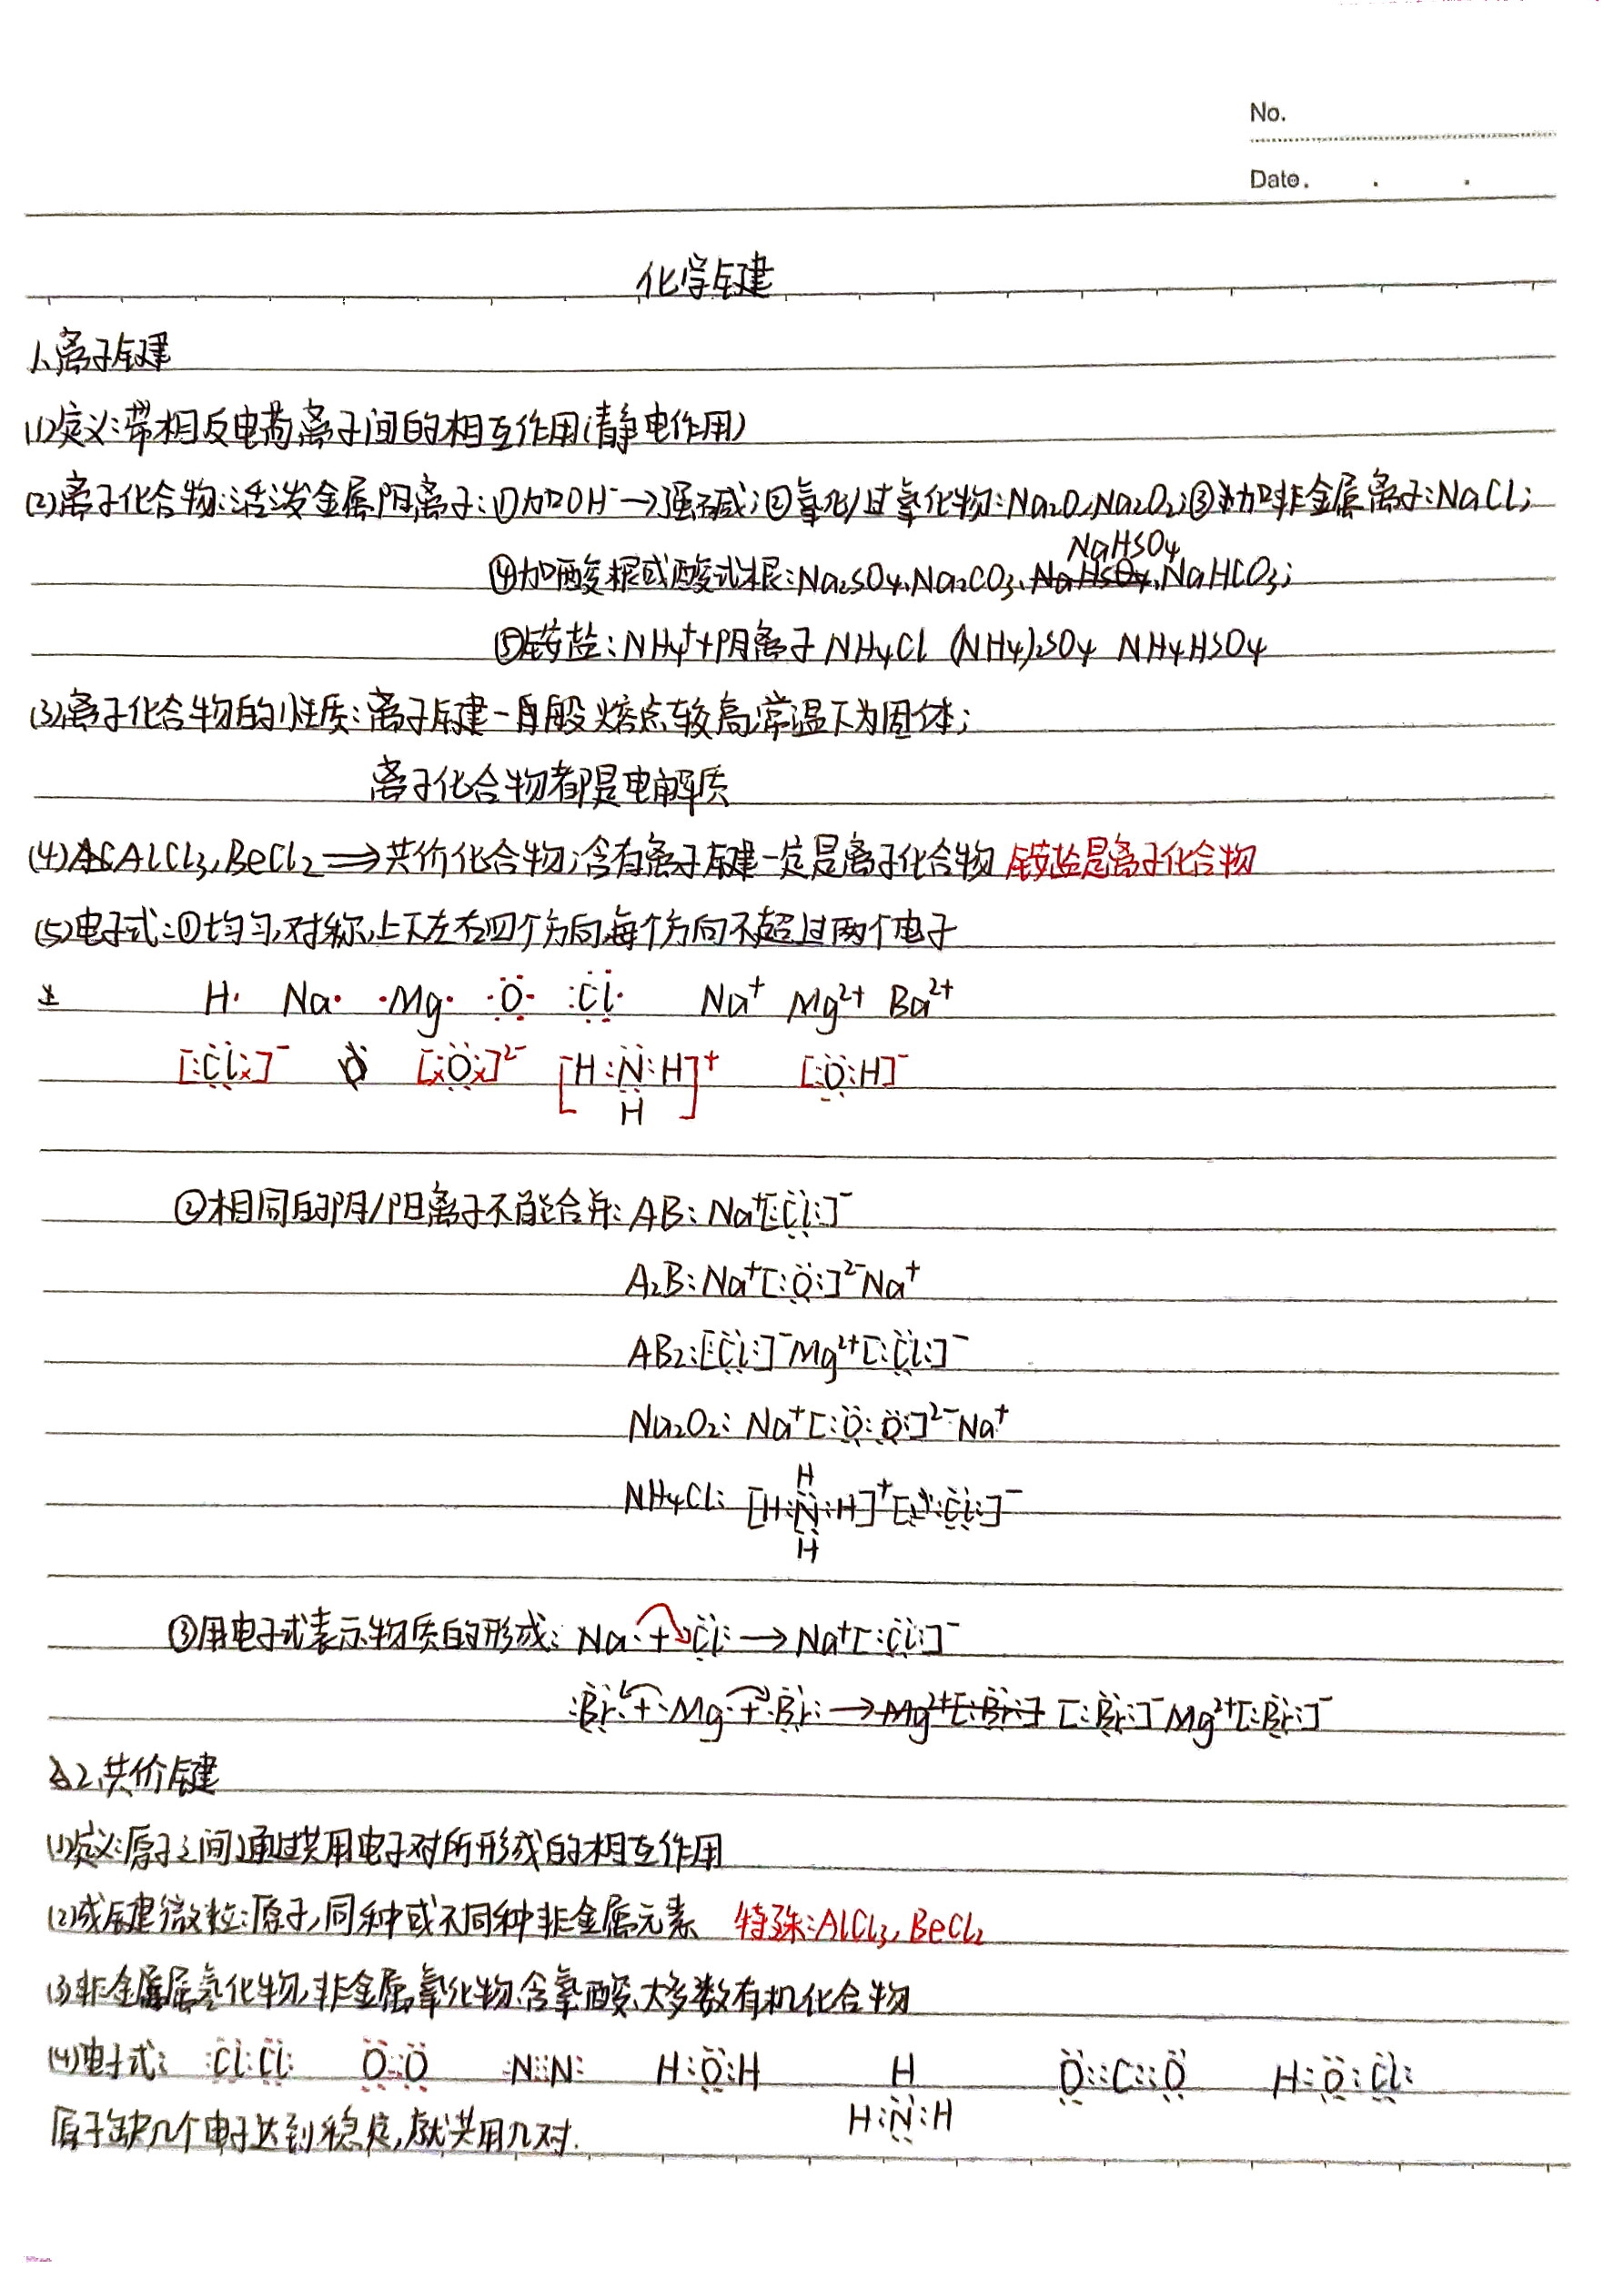 No.
Date.
化学键
1、离子键
(1)定义:带相反电荷离子间的相互作用(静电作用)
(2)离子化合物:活泼金属阳离子:①加OH⁻→强碱;②氧化/过氧化物:Na₂O、Na₂O₂;③加非金属离子:NaCl;
NaHSO₄
④加酸根或酸式根:Na₂SO₄、Na₂CO₃、NaHSO₄、NaHCO₃;
⑤铵盐:NH₄⁺+阴离子 NH₄Cl (NH₄)₂SO₄ NH₄HSO₄
(3)离子化合物的性质:离子键一般熔点较高,常温下为固体;
离子化合物都是电解质
(4)AlCl₃,BeCl₂⇒共价化合物;含有离子键一定是离子化合物 铵盐是离子化合物
(5)电子式:①均匀,对称,上下左右四个方向,每个方向不超过两个电子
H· Na· ·Mg· ·Ö· :Cl· Na⁺ Mg²⁺ Ba²⁺
[:Cl×]⁻ [×O×]²⁻ [H:N:H]⁺ [:O:H]⁻
H
②相同的阴/阳离子不能合并: AB: Na⁺[:Cl:]⁻
A₂B: Na⁺[:O:]²⁻Na⁺
AB₂: [:Cl:]⁻Mg²⁺[:Cl:]⁻
Na₂O₂: Na⁺[:O:O:]²⁻Na⁺
H
NH₄Cl: [H:N:H]⁺[:Cl:]⁻
H
③用电子式表示物质的形成: Na·+·Cl:→Na⁺[:Cl:]⁻
:Br·+·Mg·+·Br:→Mg²⁺[:Br:] [:Br:]⁻Mg²⁺[:Br:]⁻
2、共价键
(1)定义:原子之间通过共用电子对所形成的相互作用
(2)成键微粒:原子,同种或不同种非金属元素 特殊:AlCl₃,BeCl₂
(3)非金属氢化物,非金属氧化物、含氧酸、大多数有机化合物
(4)电子式: :Cl:Cl: O::O :N⋮⋮N: H:O:H H O::C::O H:O:Cl:
H:N:H
原子缺几个电子达到稳定,就共用几对.